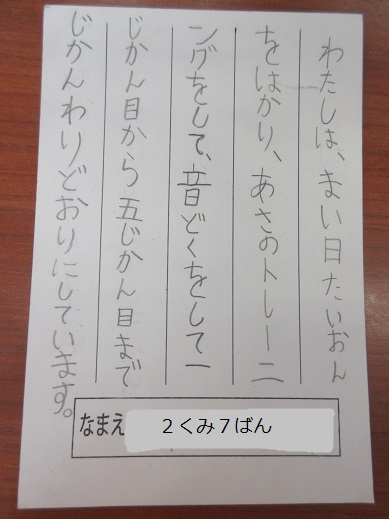 わたしは、まい日たいおん
をはかり、あさのトレーニ
ングをして、音どくをして一
じかん目から五じかん目まで
じかんわりどおりにしています。
なまえ
２くみ７ばん